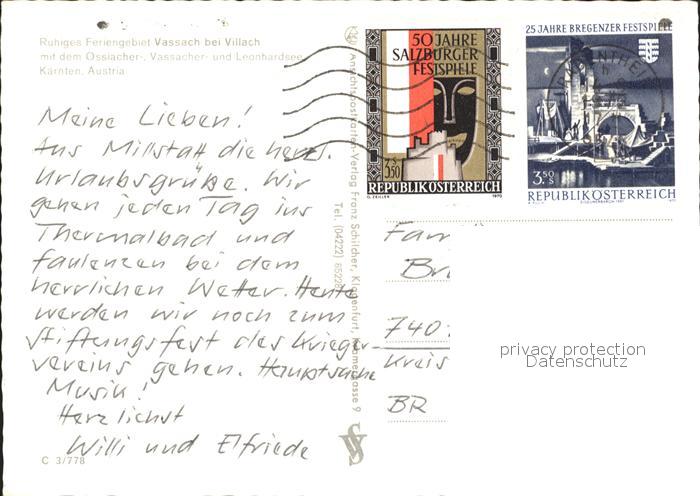 Ruhiges Feriengebiet Vassach bei Villach
mit dem Ossiacher-, Vassacher- und Leonhardsee
Kärnten, Austria
Meine Lieben!
Aus Millstatt die herzl.
Urlaubsgrüße. Wir
gehen jeden Tag ins
Thermalbad und
faulenzen bei dem
herrlichen Wetter. Heute
werden wir noch zum
Stiftungsfest des Krieger-
vereins gehen. Hauptsache
Musik!
Herzlichst
Willi und Elfriede
C 3/778
Ansichtspostkarten-Verlag Franz Schilcher, Klagenfurt,
Tel. (04222)
50 JAHRE
SALZBURGER
FESTSPIELE
3.50
S
REPUBLIK ÖSTERREICH
G. ZEILLER
1970
25 JAHRE BREGENZER FESTSPIELE
3.50
S
REPUBLIK ÖSTERREICH
Fam
Br
740
Kreis
BR
privacy protection
Datenschutz